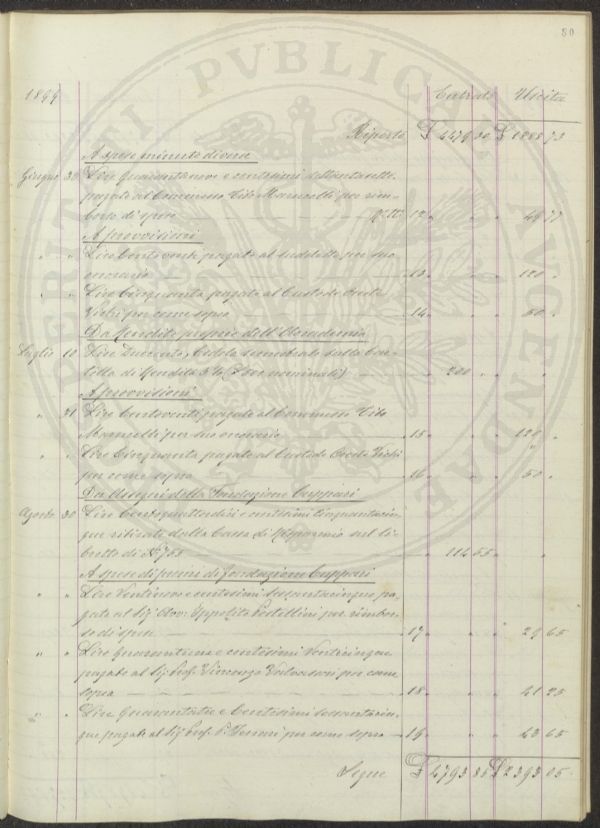 80
1899 Entrata Uscita
Riporto £ 4479 30 £ 1888 73
A spese minute diverse
Giugno 30 Lire Quarantanove e centesimi settantasette
pagate al Commesso Tito Marucelli per rim-
borso di spese 12 49 77
A provvisioni
" " Lire Centoventi pagate al suddetto per suo
onorario 13 120 "
" " Lire Cinquanta pagate al Custode Oreste
Vichi per come sopra 14 50 "
Da Rendite proprie dell'Accademia
Luglio 10 Lire Duecento, Cedola semestrale sulla Car-
tella di Rendita nominali) 200 "
A provvisioni
" 31 Lire Centoventi pagate al Commesso Tito
Marucelli per suo onorario 15 120 "
" " Lire Cinquanta pagate al Custode Oreste Vichi
per come sopra 16 50 "
Da Assegni della Fondazione Cuppari
Agosto 30 Lire Centoquattordici e centesimi Cinquantacin-
que ritirate dalla Cassa di Risparmio sul li-
bretto di N° 753 114 55
A spese di premi di fondazione Cuppari
" " Lire Ventinove e centesimi Sessantacinque pa-
gate al Sig. Avv. Ippolito Pestellini per rimbor-
so di spese 17 29 65
" " Lire Quarantuna e centesimi Venticinque
pagate al Sig. Prof. Vincenzo per come
sopra 18 41 25
" " Lire Quarantatre e Centesimi sessantacin-
que pagate al Sig. Prof. per come sopra 19 43 65
Segue £ 4793 85 £ 2393 05
PERITI PVBLICAE AVGENDAE